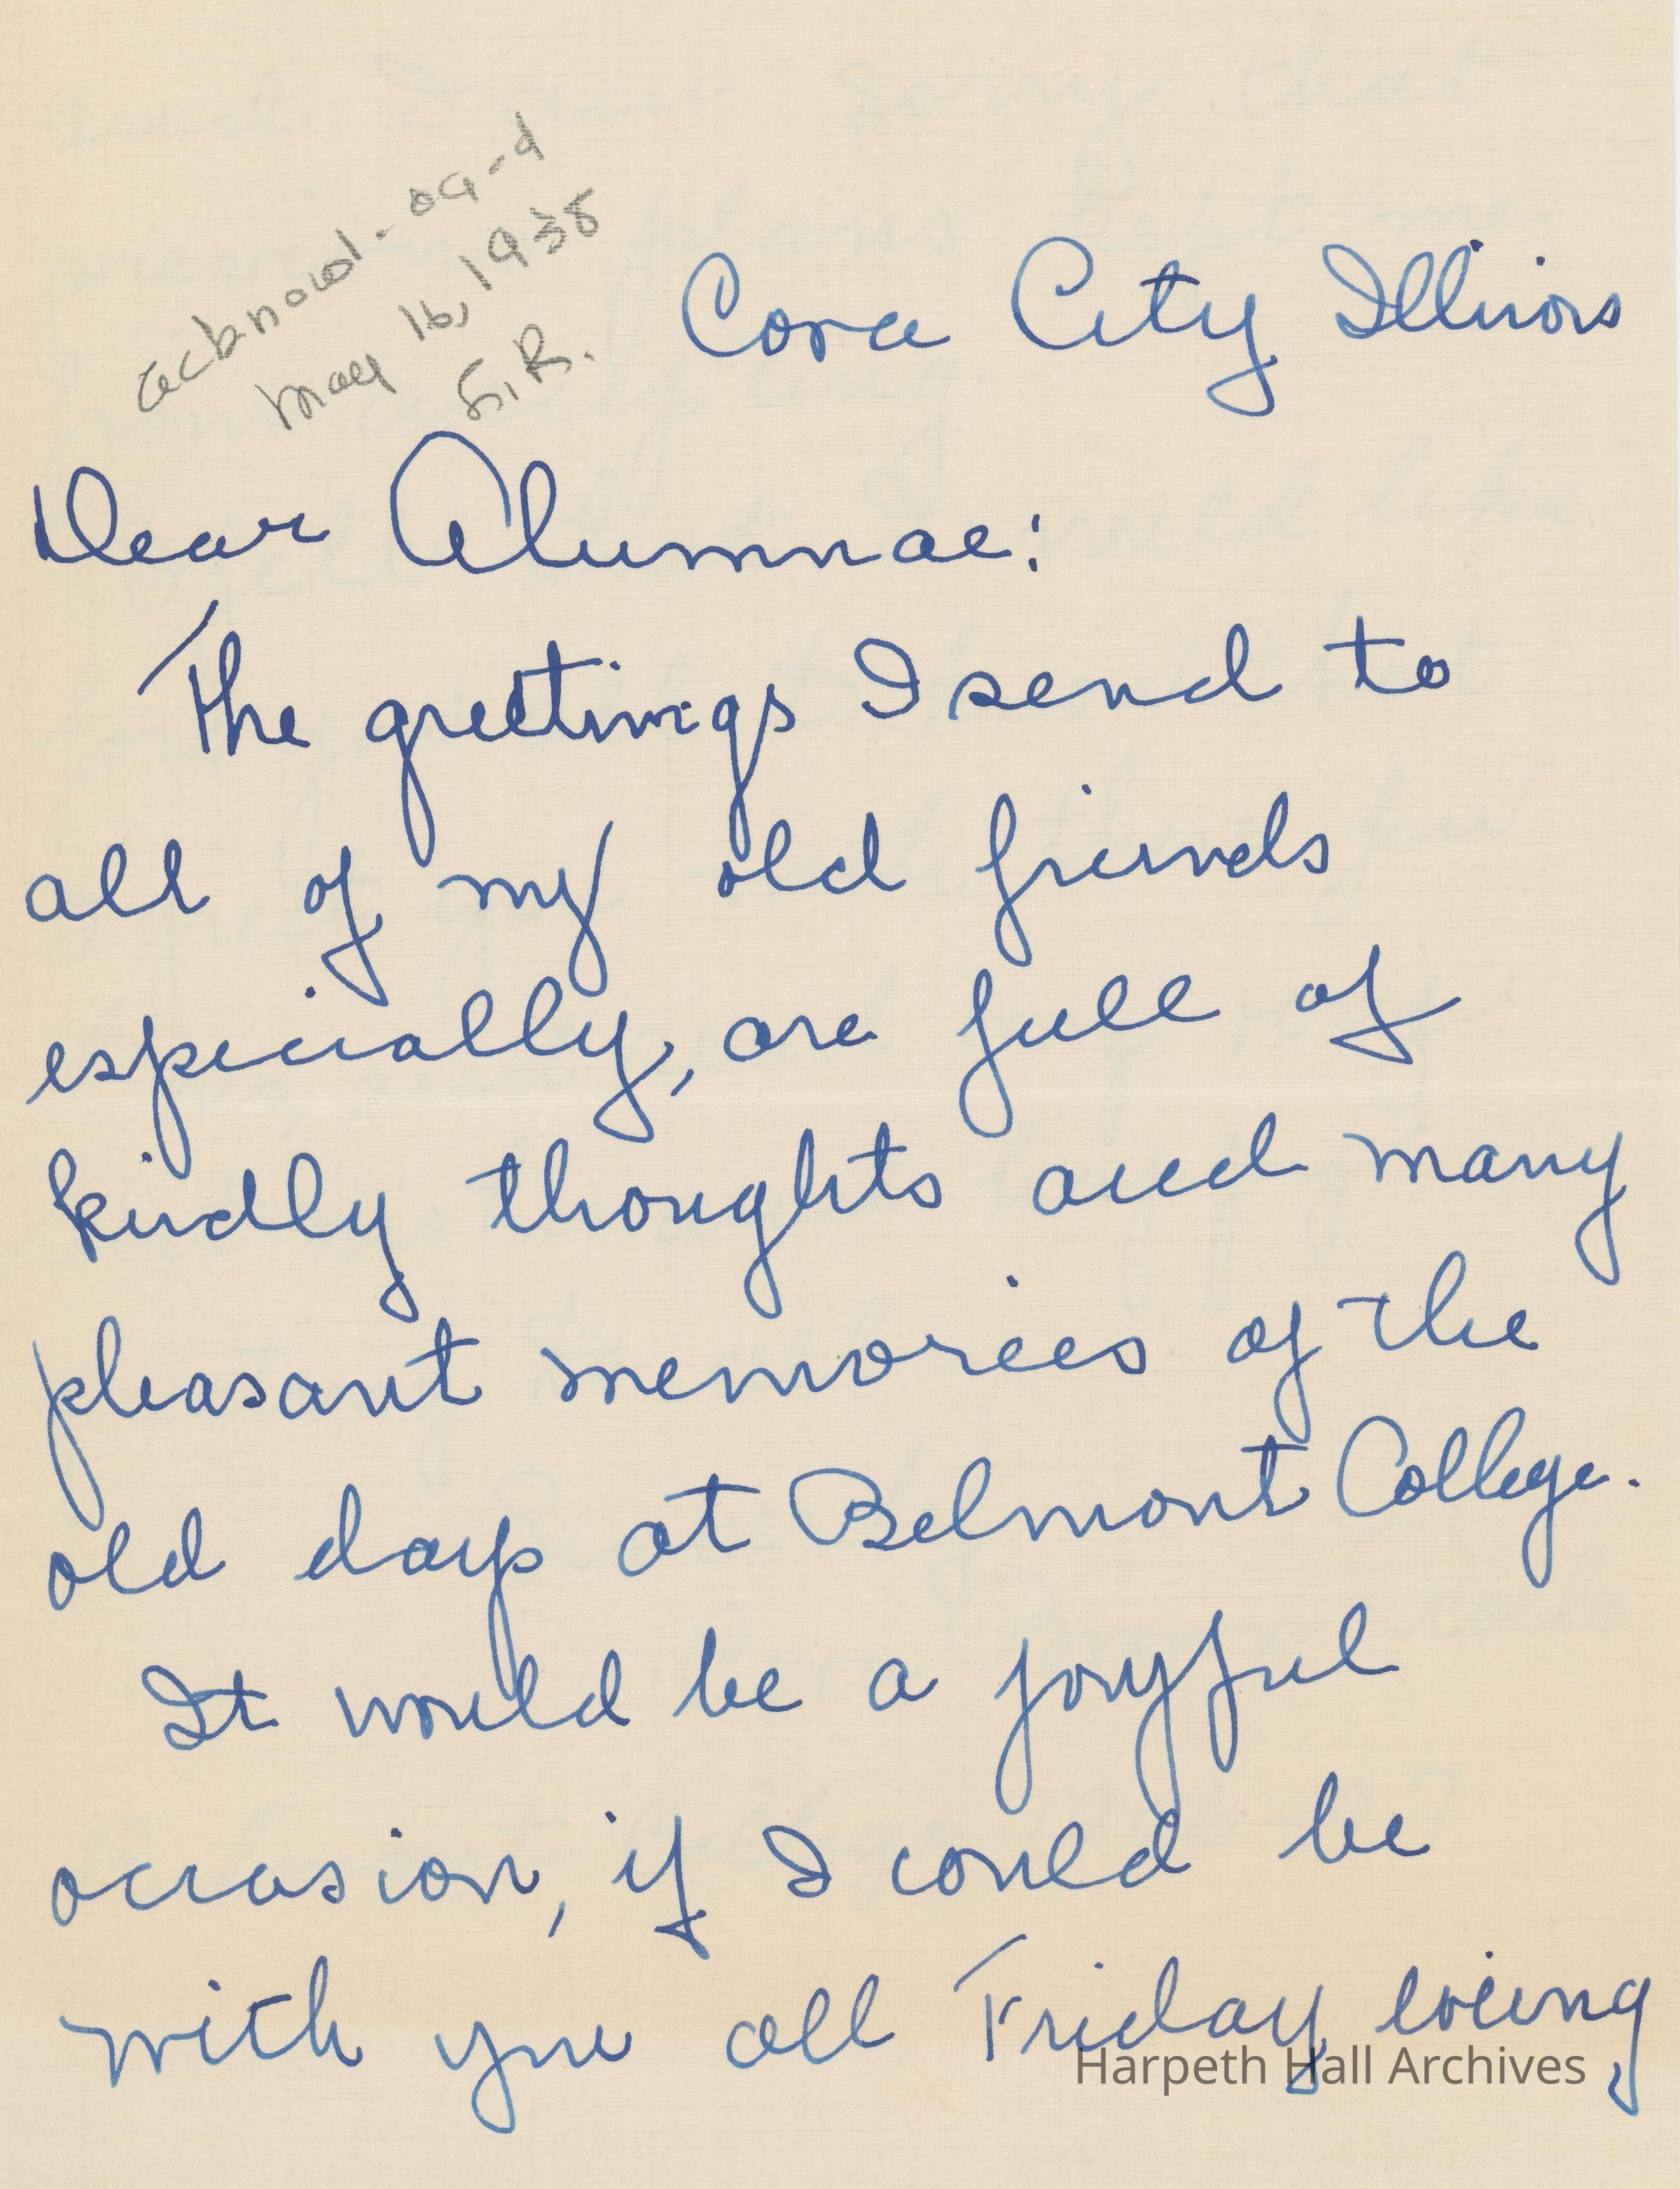 acknowl-og-d
May 16, 1938
S.R.
Cora City Illinois
Dear Alumnae:
The greetings I send to
all of my old friends
especially, are full of
kindly thoughts and many
pleasant memories of the
old days at Belmont College.
It would be a joyful
occasion, if I could be
with you all Friday evening
Harpeth Hall Archives